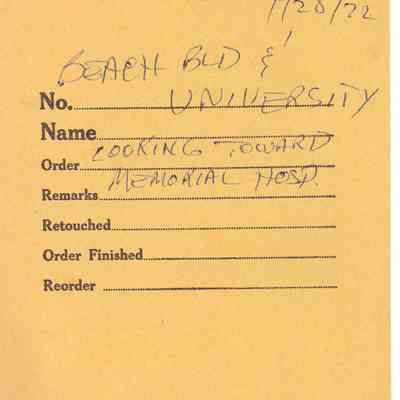 1/20/72
BEACH BLD &
No. UNIVERSITY
Name
LOOKING TOWARD
Order
MEMORIAL HOSP.
Remarks
Retouched
Order Finished
Reorder